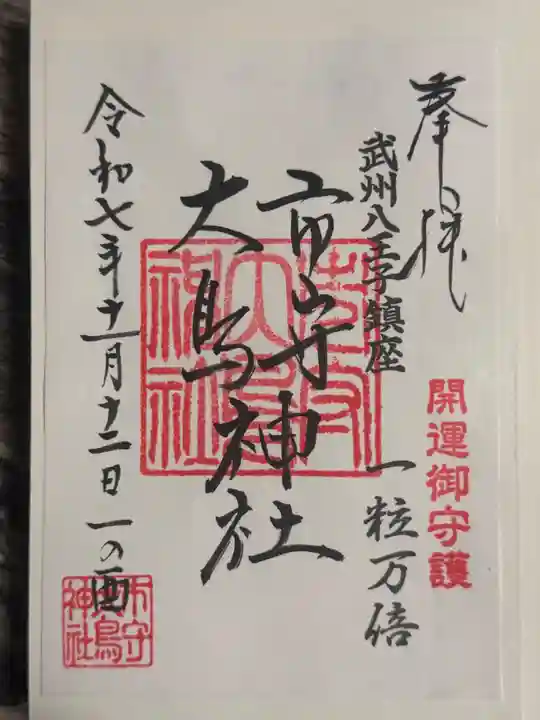 奉拝
開運御守護
武州八王子鎮座 一粒万倍
市守神社
大鳥神社
令和七年十一月十二日 一の酉
市守
大鳥
神社
市守
大鳥
神社